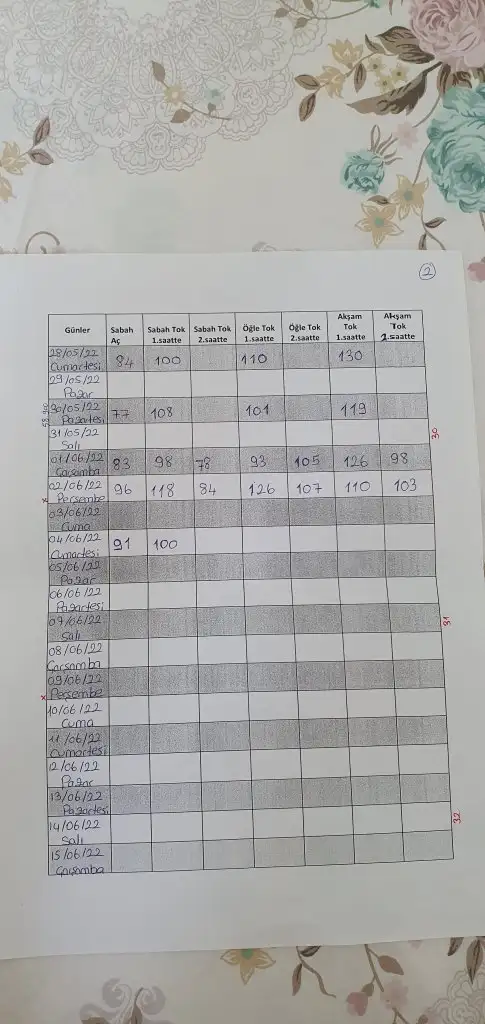 2
Günler Sabah Aç Sabah Tok 1.saatte Sabah Tok 2.saatte Öğle Tok 1.saatte Öğle Tok 2.saatte Akşam Tok 1.saatte Akşam Tok 2.saatte
28/05/22 Cumartesi 84 100 110 130
29/05/22 Pazar
30/05/22 Pazartesi 77 108 101 119
31/05/22 Salı
30
01/06/22 Çarşamba 83 98 78 93 105 126 98
x 02/06/22 Perşembe 96 118 84 126 107 110 103
03/06/22 Cuma
04/06/22 Cumartesi 91 100
05/06/22 Pazar
06/06/22 Pazartesi
07/06/22 Salı
31
08/06/22 Çarşamba
x 09/06/22 Perşembe
10/06/22 Cuma
11/06/22 Cumartesi
12/06/22 Pazar
13/06/22 Pazartesi
14/06/22 Salı
32
15/06/22 Çarşamba